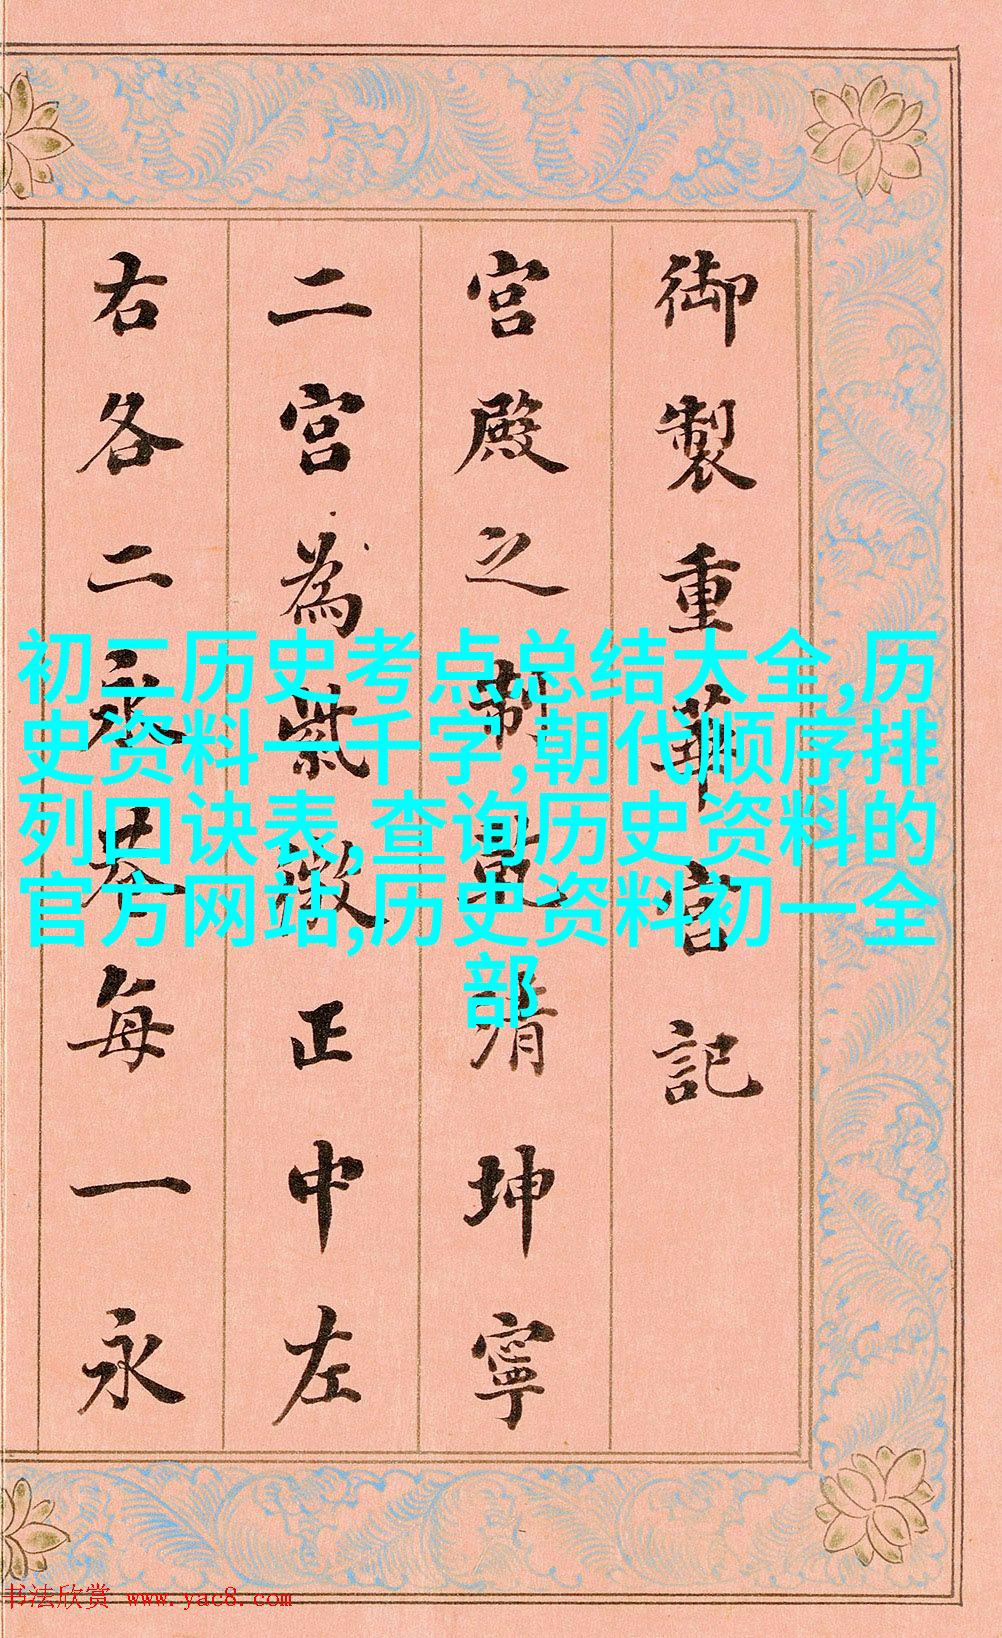 御製重華宮記
宮殿之制乾清坤寧
二宮為紫微正中左
右各二永巷每一永
初二历史考点总结大全,历
史资料一千字,朝代顺序排
列口诀表,查询历史资料的
官方网站,历史资料初一全
部
书法欣赏 www.yac8.com